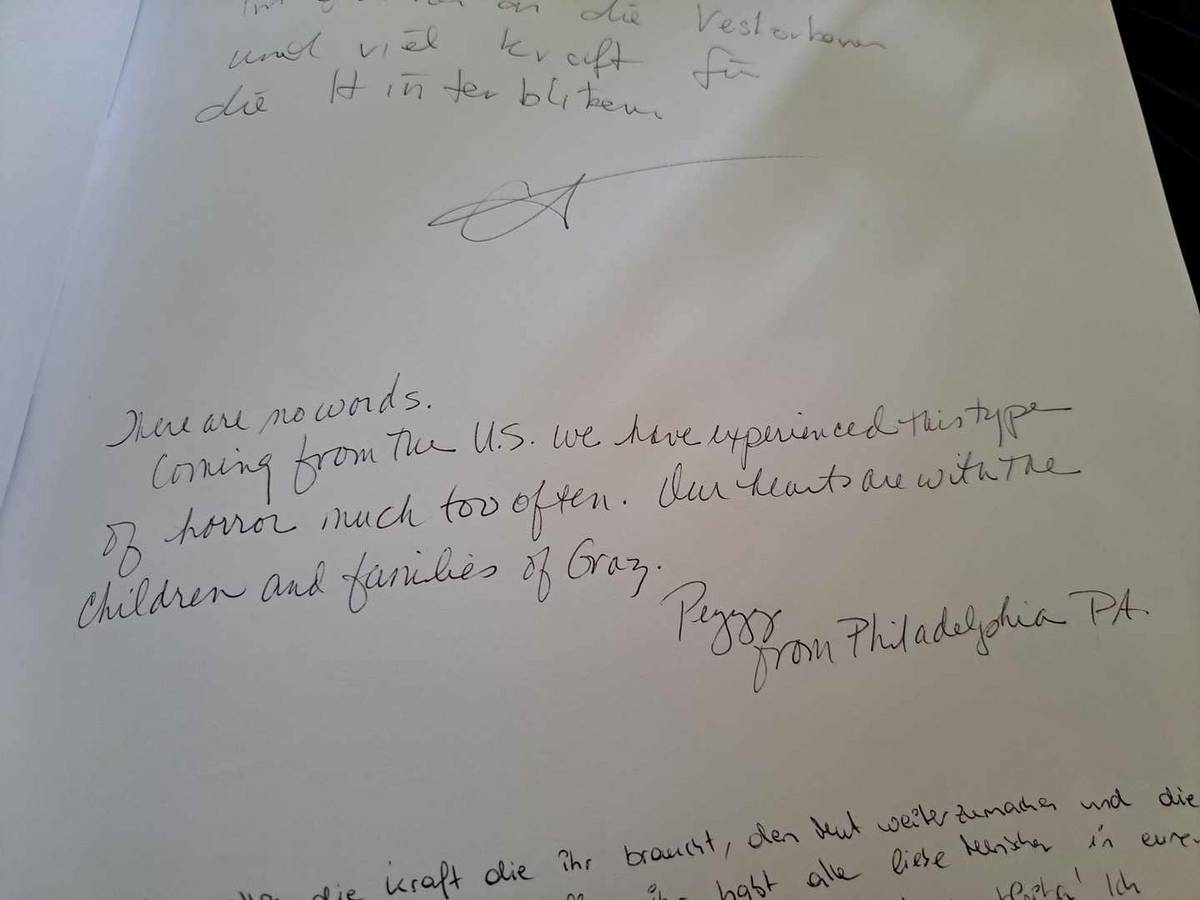 die
und viel kraft für
die Hinterbliben.
There are no words.
Coming from the U.S. we have experienced this type
of horror much too often. Our hearts are with the
children and families of Graz.
Peggy
from Philadelphia PA.
die kraft die ihr braucht, den Mut weiterzumachen und die
habt alle liebe Menschen in eurer
Ich